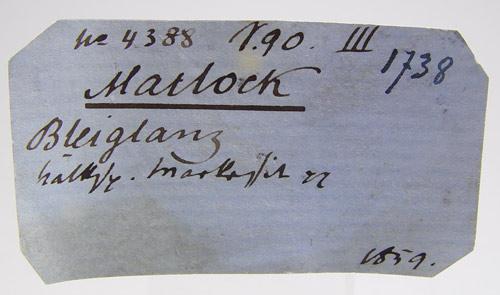 No 4388 V.90. III
1738
Matlock
Bleiglanz
Kalksp. Markasit
1859.